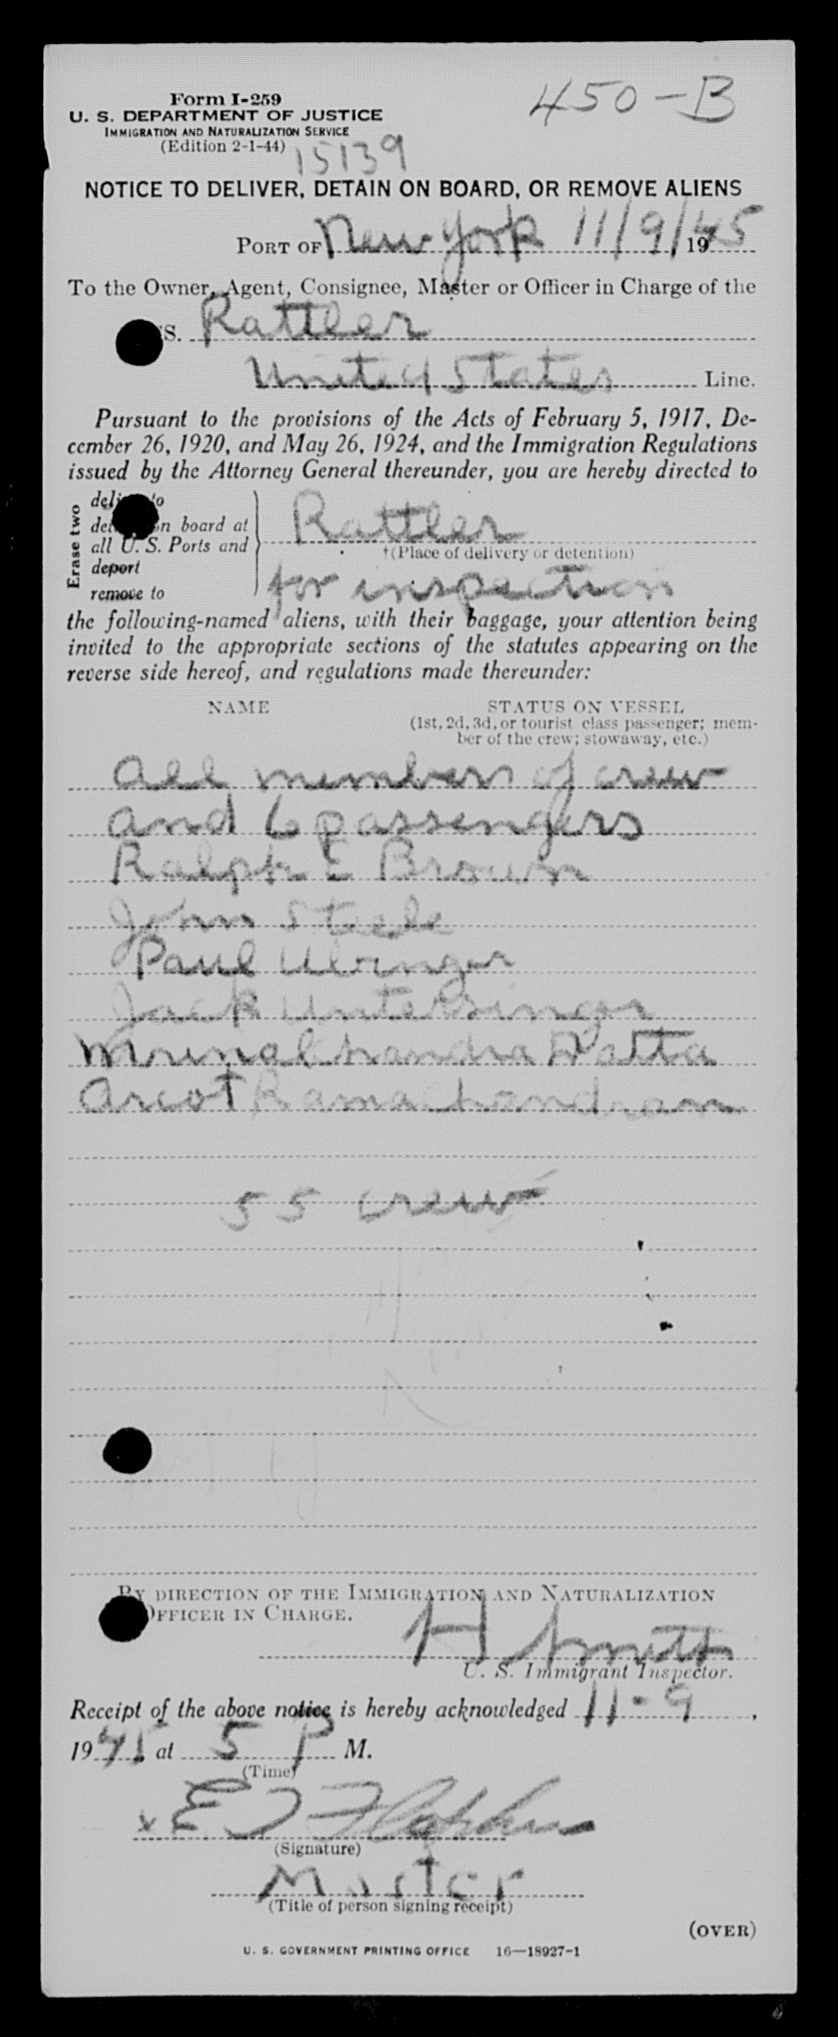 Form I-259
U. S. DEPARTMENT OF JUSTICE
IMMIGRATION AND NATURALIZATION SERVICE
(Edition 2-1-44)
450-B
15139
NOTICE TO DELIVER, DETAIN ON BOARD, OR REMOVE ALIENS
PORT OF New York 11/9/1945
To the Owner, Agent, Consignee, Master or Officer in Charge of the
S. Rattler
United States Line.
Pursuant to the provisions of the Acts of February 5, 1917, De-
cember 26, 1920, and May 26, 1924, and the Immigration Regulations
issued by the Attorney General thereunder, you are hereby directed to
Erase two
on board at
all U. S. Ports and
deport
remove to
Rattler
†(Place of delivery or detention)
for inspection
the following-named aliens, with their baggage, your attention being
invited to the appropriate sections of the statutes appearing on the
reverse side hereof, and regulations made thereunder:
NAME STATUS ON VESSEL
(1st, 2d, 3d, or tourist class passenger; mem-
ber of the crew; stowaway, etc.)
All members of crew
and 6 passengers
Ralph E Brown
John Steele
Paul
Jack Untersinger
Mrinal Chandra Datta
Arcot Ramachandram
55 crew
BY DIRECTION OF THE IMMIGRATION AND NATURALIZATION
OFFICER IN CHARGE.
H Smith
U. S. Immigrant Inspector.
Receipt of the above notice is hereby acknowledged 11-9,
1945 at 5 P M.
(Time)
x E J
(Signature)
Master
(Title of person signing receipt)
(OVER)
U. S. GOVERNMENT PRINTING OFFICE 16—18927-1